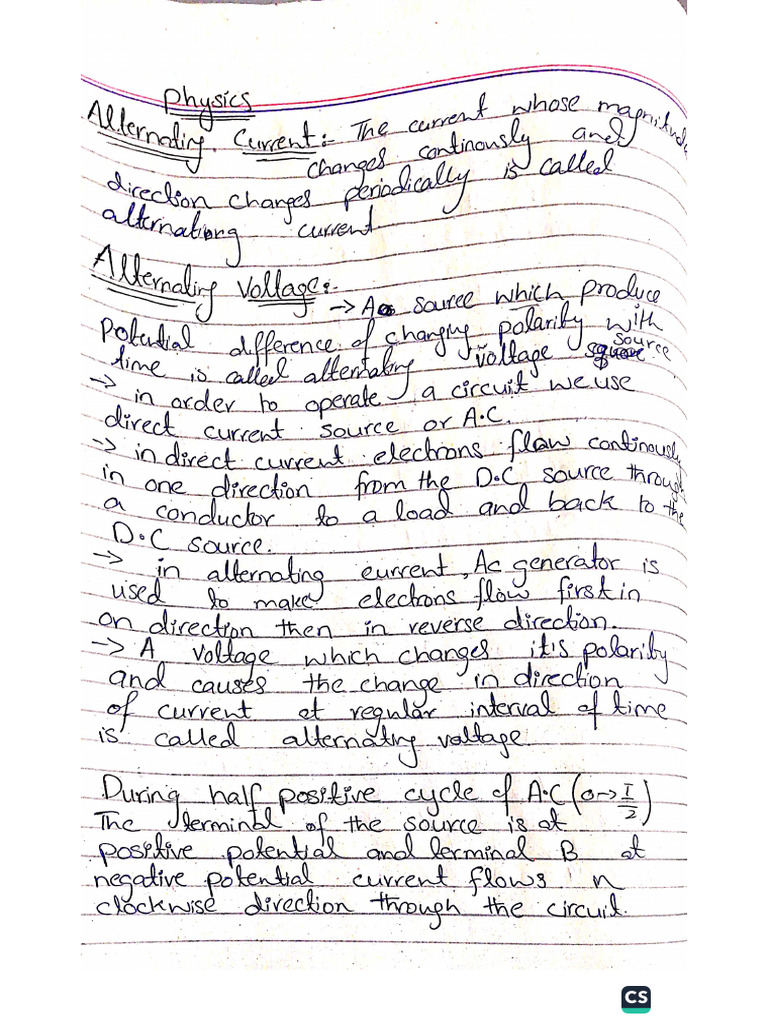 Physics
Alternating Current:- The current whose magnitude
changes continously and
direction changes periodically is called
alternationg current
Alternating Voltage:-
→ A source which produce
potential difference of changing polarity with
time is called alternating voltage source
→ in order to operate a circuit we use
direct current source or A.C.
→ in direct current electrons flow continously
in one direction from the D.C source through
a conductor to a load and back to the
D.C source.
→ in alternating current, Ac generator is
used to make electrons flow first in
on direction then in reverse direction.
→ A voltage which changes it's polarity
and causes the change in direction
of current at regular interval of time
is called alternating voltage
During half positive cycle of A.C (0→I/2)
The terminal of the source is at
positive potential and terminal B at
negative potential current flows in
clockwise direction through the circuit.
CS